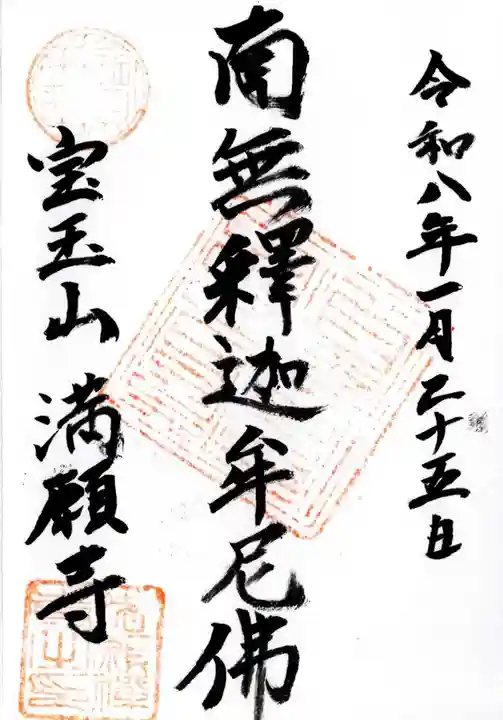 令和八年一月二十五日
南無釋迦牟尼佛
宝玉山 満願寺